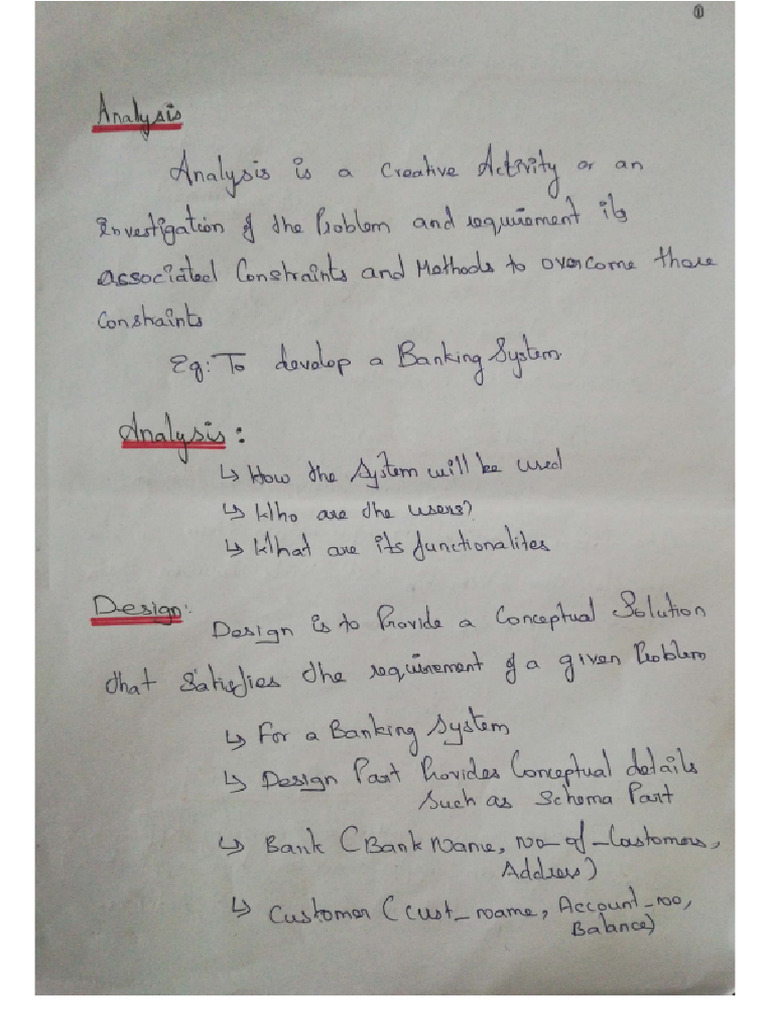 ①
Analysis
Analysis is a Creative Activity or an
Investigation of the Problem and requirement its
associated Constraints and Methods to overcome those
Constraints
Eg: To develop a Banking System
Analysis:
↳ How the System will be used
↳ Who are the users?
↳ What are its functionalites
Design:
Design is to Provide a Conceptual Solution
that satisfies the requirement of a given Problem
↳ For a Banking System
↳ Design Part Provides Conceptual details
such as Schema Part
↳ Bank (Bank Name, No_of_Customers,
Address)
↳ Customer (cust_name, Account_no,
Balance)